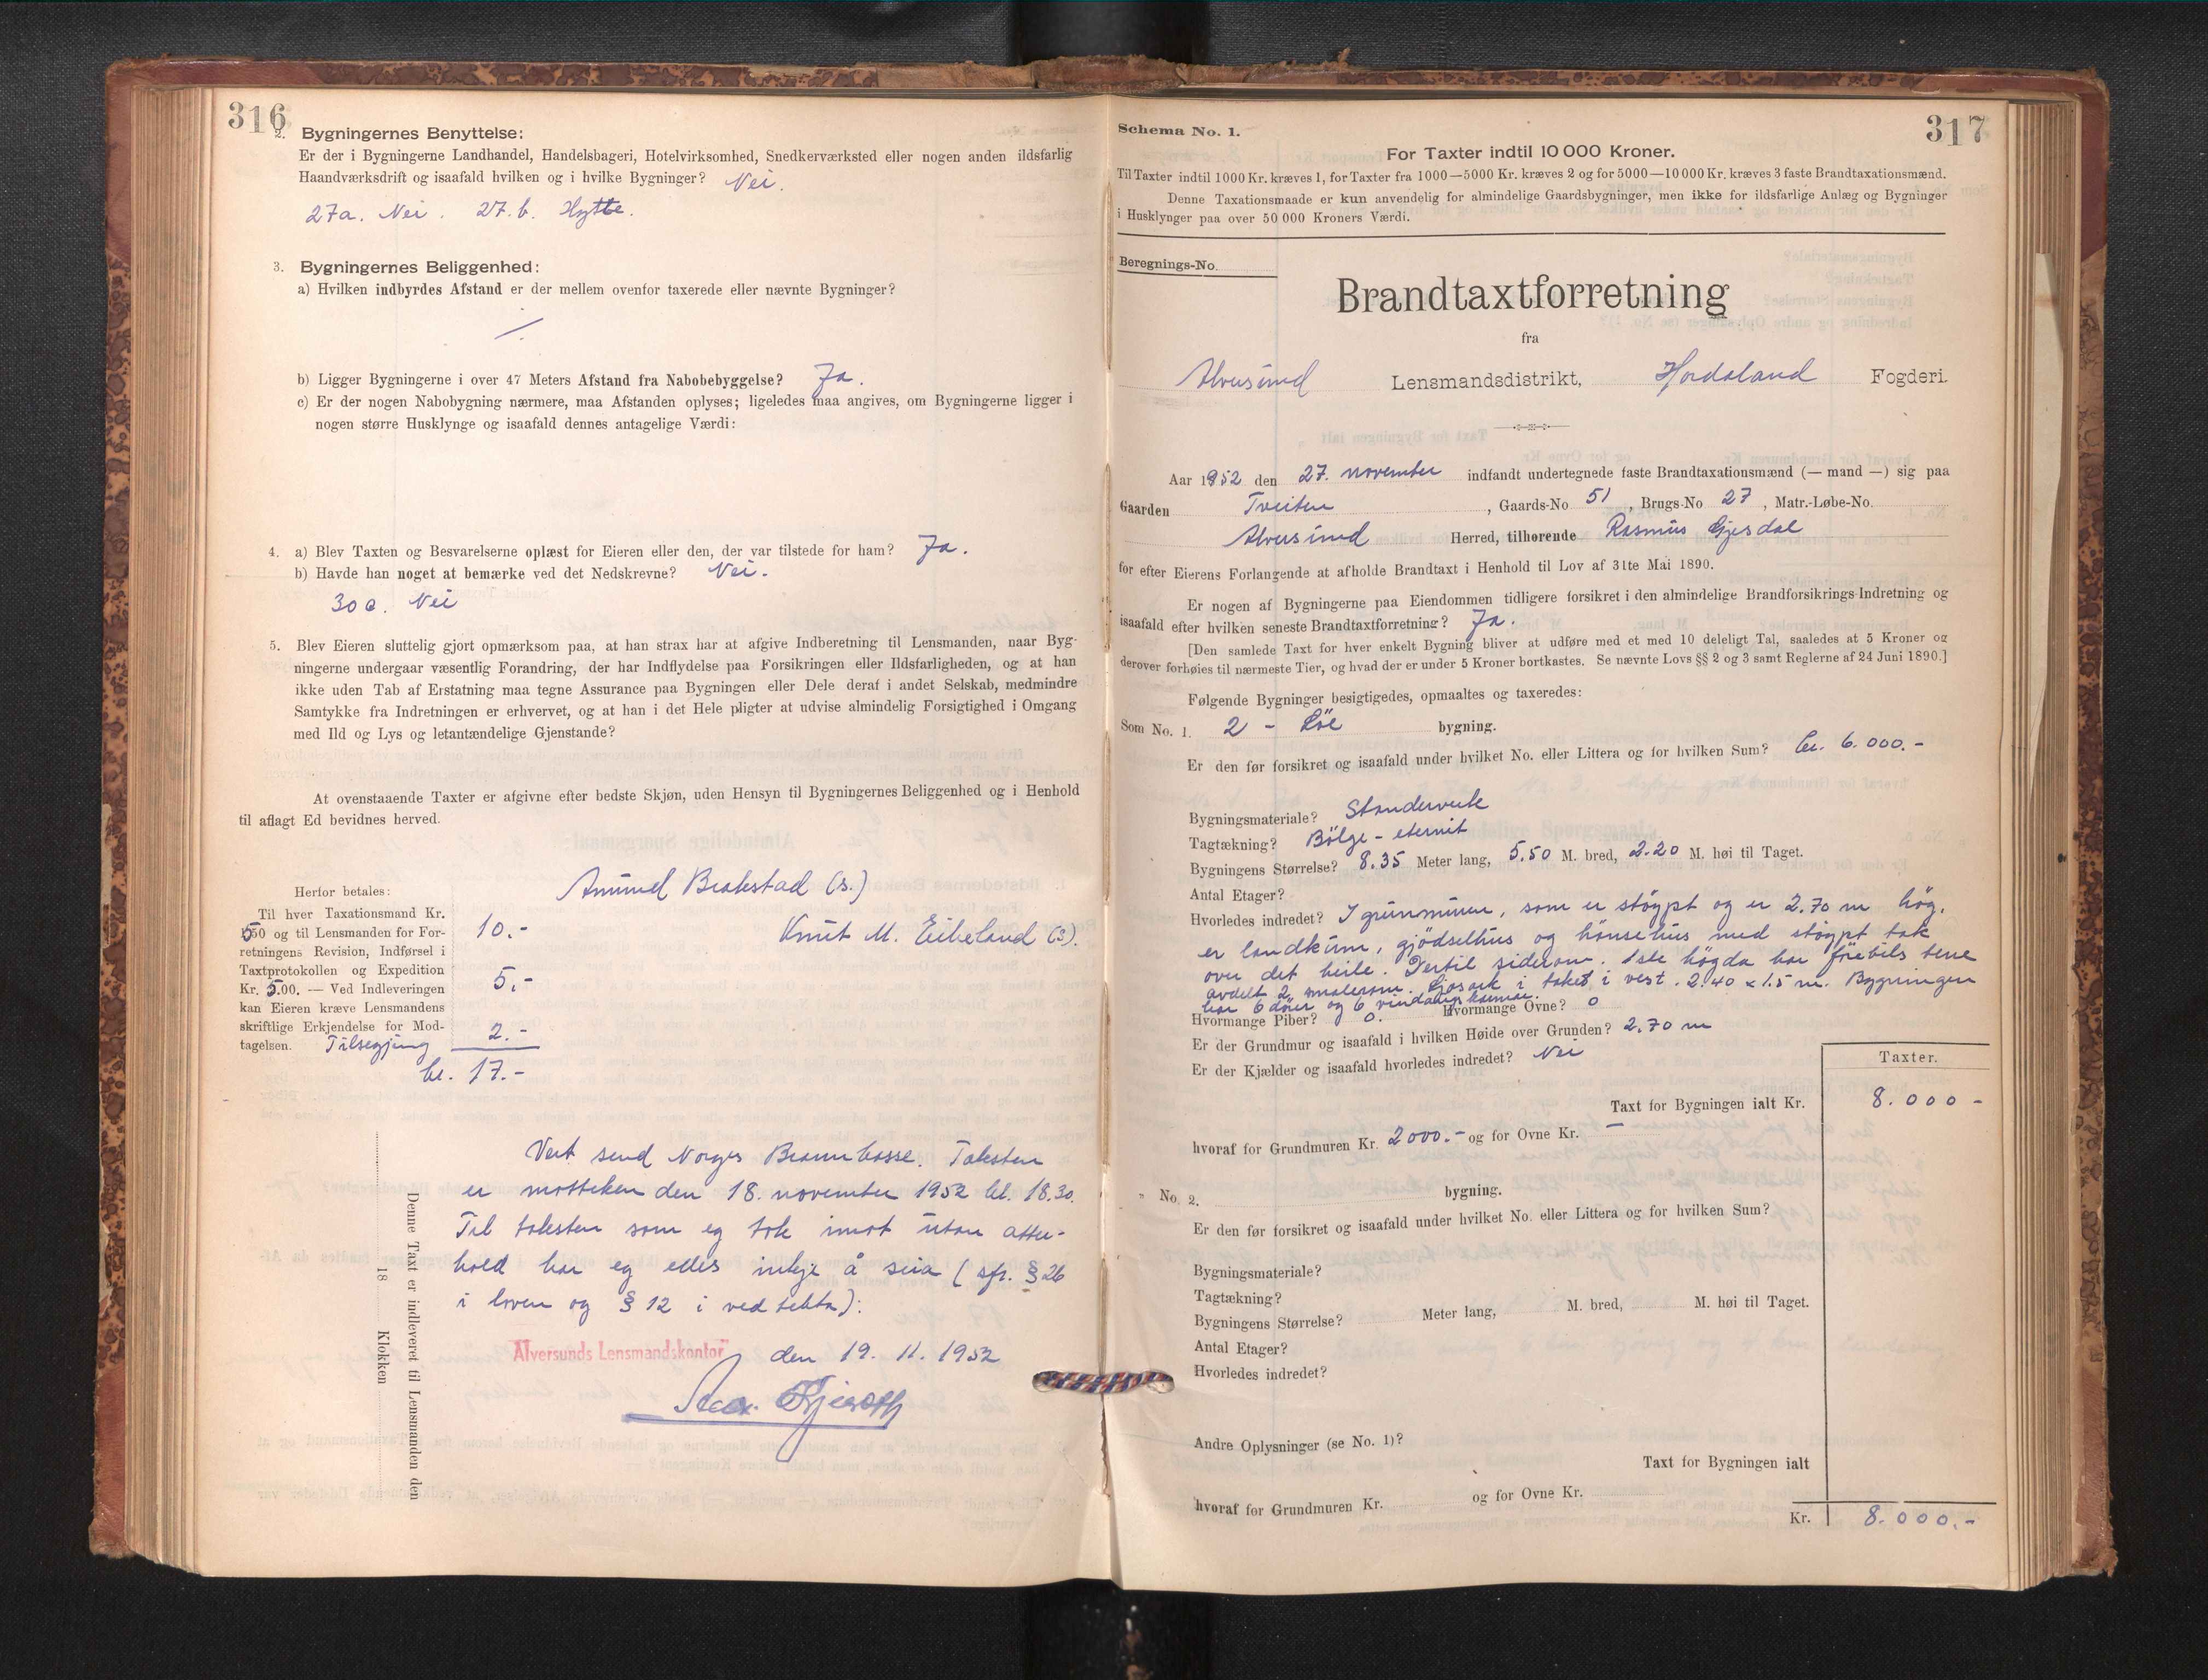 316
2. Bygningernes Benyttelse:
Er der i Bygningerne Landhandel, Handelsbageri, Hotelvirksomhed, Snedkerværksted eller nogen anden ildsfarlig
Haandværksdrift og isaafald hvilken og i hvilke Bygninger? Nei.
27a. Nei. 27.b. Hytte.
3. Bygningernes Beliggenhed:
a) Hvilken indbyrdes Afstand er der mellem ovenfor taxerede eller nævnte Bygninger?
b) Ligger Bygningerne i over 47 Meters Afstand fra Nabobebyggelse? Ja.
c) Er der nogen Nabobygning nærmere, maa Afstanden oplyses; ligeledes maa angives, om Bygningerne ligger i
nogen større Husklynge og isaafald dennes antagelige Værdi:
4. a) Blev Taxten og Besvarelserne oplæst for Eieren eller den, der var tilstede for ham? Ja.
b) Havde han noget at bemærke ved det Nedskrevne? Nei.
30a. Nei
5. Blev Eieren sluttelig gjort opmærksom paa, at han strax har at afgive Indberetning til Lensmanden, naar Byg-
ningerne undergaar væsentlig Forandring, der har Indflydelse paa Forsikringen eller Ildsfarligheden, og at han
ikke uden Tab af Erstatning maa tegne Assurance paa Bygningen eller Dele deraf i andet Selskab, medmindre
Samtykke fra Indretningen er erhvervet, og at han i det Hele pligter at udvise almindelig Forsigtighed i Omgang
med Ild og Lys og letantændelige Gjenstande?
At ovenstaaende Taxter er afgivne efter bedste Skjøn, uden Hensyn til Bygningernes Beliggenhed og i Henhold
til aflagt Ed bevidnes herved.
Amund Brakstad (s.)
Knut M. Eikeland (s).
Herfor betales:
Til hver Taxationsmand Kr.
5.50 og til Lensmanden for For- 10.-
retningens Revision, Indførsel i
Taxtprotokollen og Expedition
Kr. 5.00. — Ved Indleveringen 5,-
kan Eieren kræve Lensmandens
skriftlige Erkjendelse for Mod-
tagelsen. Tilsegjing 2.-
kr. 17.-
Vert send Norges Brannkasse. Taksten
er motteken den 18. november 1952 kl. 18.30.
Til taksten som eg tok imot utan atter-
hald har eg elles inkje å seia (sfr. § 26
i loven og § 12 i vedtekta):
Alversunds Lensmandskontor den 19. 11. 1952
Denne Taxt er indleveret til Lensmanden den
18 Klokken
317
Schema No. 1.
For Taxter indtil 10 000 Kroner.
Til Taxter indtil 1000 Kr. kræves 1, for Taxter fra 1000—5000 Kr. kræves 2 og for 5000—10 000 Kr. kræves 3 faste Brandtaxationsmænd.
Denne Taxationsmaade er kun anvendelig for almindelige Gaardsbygninger, men ikke for ildsfarlige Anlæg og Bygninger
i Husklynger paa over 50 000 Kroners Værdi.
Beregnings-No.
Brandtaxtforretning
fra
Alversund Lensmandsdistrikt, Hordaland Fogderi.
Aar 1952 den 27. november indfandt undertegnede faste Brandtaxationsmænd (— mand —) sig paa
Gaarden Tveiten, Gaards-No 51, Brugs-No 27, Matr.-Løbe-No.
Alversund Herred, tilhørende Rasmus Gjesdal
for efter Eierens Forlangende at afholde Brandtaxt i Henhold til Lov af 31te Mai 1890.
Er nogen af Bygningerne paa Eiendommen tidligere forsikret i den almindelige Brandforsikrings-Indretning og
isaafald efter hvilken seneste Brandtaxtforretning? Ja.
[Den samlede Taxt for hver enkelt Bygning bliver at udføre med et med 10 deleligt Tal, saaledes at 5 Kroner og
derover forhøies til nærmeste Tier, og hvad der er under 5 Kroner bortkastes. Se nævnte Lovs §§ 2 og 3 samt Reglerne af 24 Juni 1890.]
Følgende Bygninger besigtigedes, opmaaltes og taxeredes:
Som No. 1. 2 - Löe bygning.
Er den før forsikret og isaafald under hvilket No. eller Littera og for hvilken Sum? kr. 6.000.-
Bygningsmateriale? Standerverk
Tagtækning? Bölge-eternit
Bygningens Størrelse? 8.35 Meter lang, 5.50 M. bred, 2.20 M. høi til Taget.
Antal Etager?
Hvorledes indredet? I grunnmuren, som er stöypt og er 2.70 m hög,
er landkum, gjödselhus og hönsehus med stöypt tak
over det heile. Dertil siderom. 1ste högda har förebils tene
avdelt 2 smalerom. Ljosark i taket i vest. 2.40 x 1.5 m. Bygningen
har 6 dörer og 6 vindauga karmar.
Hvormange Piber? 0. Hvormange Ovne? 0
Er der Grundmur og isaafald i hvilken Høide over Grunden? 2.70 m
Er der Kjælder og isaafald hvorledes indredet? Nei
Taxter.
Taxt for Bygningen ialt Kr. 8.000-
hvoraf for Grundmuren Kr. 2000.- og for Ovne Kr. —
" No. 2. bygning.
Er den før forsikret og isaafald under hvilket No. eller Littera og for hvilken Sum?
Bygningsmateriale?
Tagtækning?
Bygningens Størrelse? Meter lang, M. bred, M. høi til Taget.
Antal Etager?
Hvorledes indredet?
Andre Oplysninger (se No. 1)?
Taxt for Bygningen ialt
hvoraf for Grundmuren Kr. og for Ovne Kr.
Kr. 8.000.-